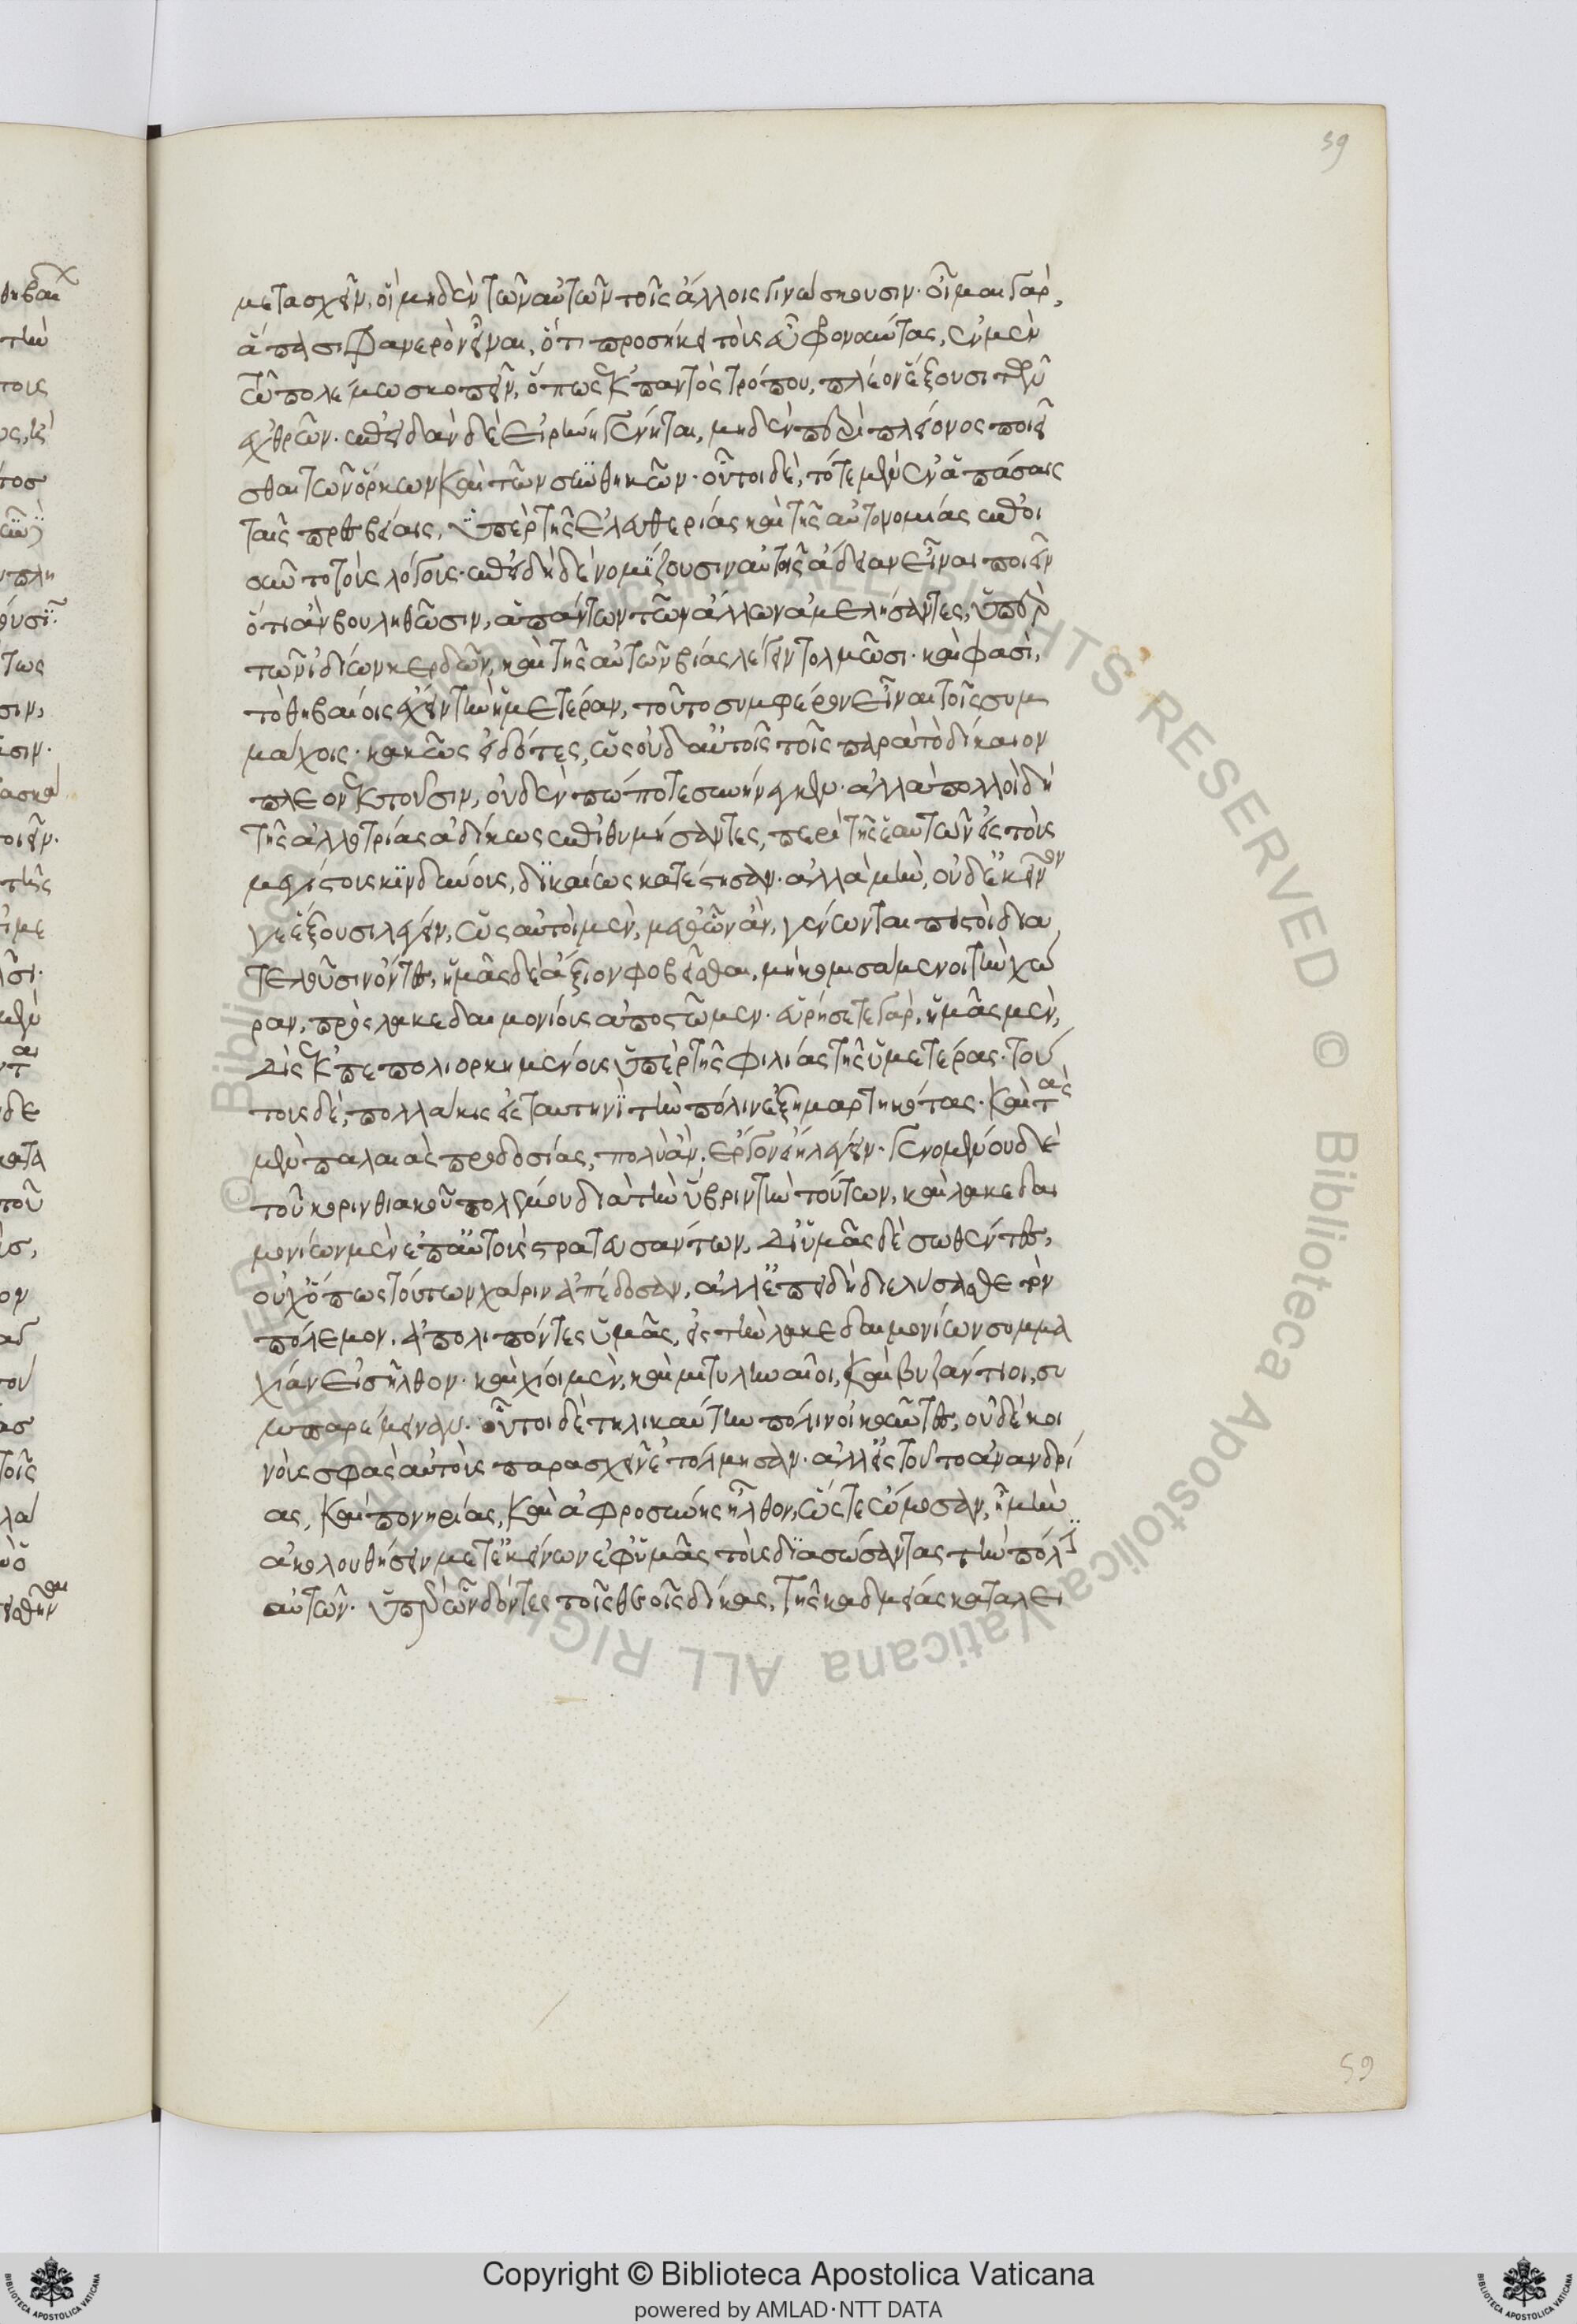 59
μετασχεῖν, οἳ μηδὲν τῶν αὐτῶν τοῖς ἄλλοις γινώσκουσιν· οἶμαι γὰρ,
ἅπασι φανερὸν εἶναι, ὅτι προσήκει τοὺς εὖ φρονοῦντας, ἐν μὲν
τῶ πολέμω σκοπεῖν, ὅπως ἐκ παντὸς τρόπου, πλέον ἕξουσι τῶν
ἐχθρῶν. ἐπειδὰν δὲ εἰρήνη γένηται, μηδὲν περὶ πλείονος ποιεῖ
σθαι τῶν ὅρκων καὶ τῶν συνθηκῶν. οὗτοι δὲ, τότε μὲν ἐν ἁπάσαις
ταῖς πρεσβείαις, ὑπὲρ τῆς ἐλευθερίας καὶ τῆς αὐτονομίας ἐποι
οῦντο τοὺς λόγους. ἐπειδὴ δὲ νομίζουσιν αὐτοῖς ἄδειαν εἶναι ποιεῖν
ὅτι ἂν βουληθῶσιν, ἁπάντων τῶν ἄλλων ἀμελήσαντες, ὑπὲρ
τῶν ἰδίων κερδῶν, καὶ τῆς αὐτῶν βίας λέγειν τολμῶσι. καὶ φασὶ,
τὸ θηβαίοις ἔχειν τὴν ἡμετέραν, τοῦτο συμφέρον εἶναι τοῖς συμ
μάχοις. κακῶς εἰδότες, ὡς οὐδ αὐτοῖς τοῖς παρὰ τὸ δίκαιον
πλεονεκτοῦσιν, οὐδὲν πώποτε συνήνεγκεν. ἀλλὰ πολλοὶ δὴ
τῆς ἀλλοτρίας ἀδίκως ἐπιθυμήσαντες, περὶ τῆς ἑαυτῶν εἰς τοὺς
μεγίστους κινδύνους, δικαίως κατέστησαν. ἀλλὰ μὴν, οὐδ ἐκεῖνον
γε ἕξουσι λέγειν, ὡς αὐτοὶ μὲν, μεθ ὧν ἂν, γένωνται πιστοὶ δια
τελοῦσιν ὄντες, ἡμᾶς δὲ ἄξιον φοβεῖσθαι, μὴ κομισάμενοι τὴν χώ
ραν, πρὸς λακεδαιμονίους ἀποστῶμεν. εὑρήσετε γὰρ, ἡμᾶς μὲν,
δὶς ἐκπεπολιορκημένους ὑπὲρ τῆς φιλίας τῆς ὑμετέρας. τού
τους δὲ, πολλάκις εἰς ταυτηνὶ τὴν πόλιν ἐξημαρτηκότας. καὶ τὰς
μὲν παλαιὰς προδοσίας, πολὺ ἂν ἔργον εἴη λέγειν. γενομένου δὲ
τοῦ κορινθιακοῦ πολέμου διὰ τὴν ὕβριν τὴν τούτων, καὶ λακεδαι
μονίων μὲν ἐπ αὐτοὺς στρατευσάντων, δι ὑμᾶς δὲ σωθέντες,
οὐχ ὅπως τούτων χάριν ἀπέδοσαν, ἀλλ ἐπειδὴ διελύσασθε τὸν
πόλεμον. ἀπολιπόντες ὑμᾶς, εἰς τὴν λακεδαιμονίων συμμα
χίαν εἰσῆλθον. καὶ χίοι μὲν, καὶ μιτυληναῖοι, καὶ βυζάντιοι, συ
μπαρέμειναν. οὗτοι δὲ τηλικαύτην πόλιν οἰκοῦντες, οὐδὲ κοι
νοὺς σφᾶς αὐτοὺς παρασχεῖν ἐτόλμησαν. ἀλλ εἰς τοῦτο ἀνανδρί
ας, καὶ πονηρίας, καὶ ἀφροσύνης ἦλθον, ὥστε ὤμοσαν, ἦ μὴν
ἀκολουθήσειν μετ ἐκείνων ἐφ ὑμᾶς τοὺς διασώσαντας τὴν πόλιν
αὐτῶν. ὑπὲρ ὧν δόντες τοῖς θεοῖς δίκας, τῆς καδμείας καταλει
59
Copyright © Biblioteca Apostolica Vaticana
powered by AMLAD·NTT DATA